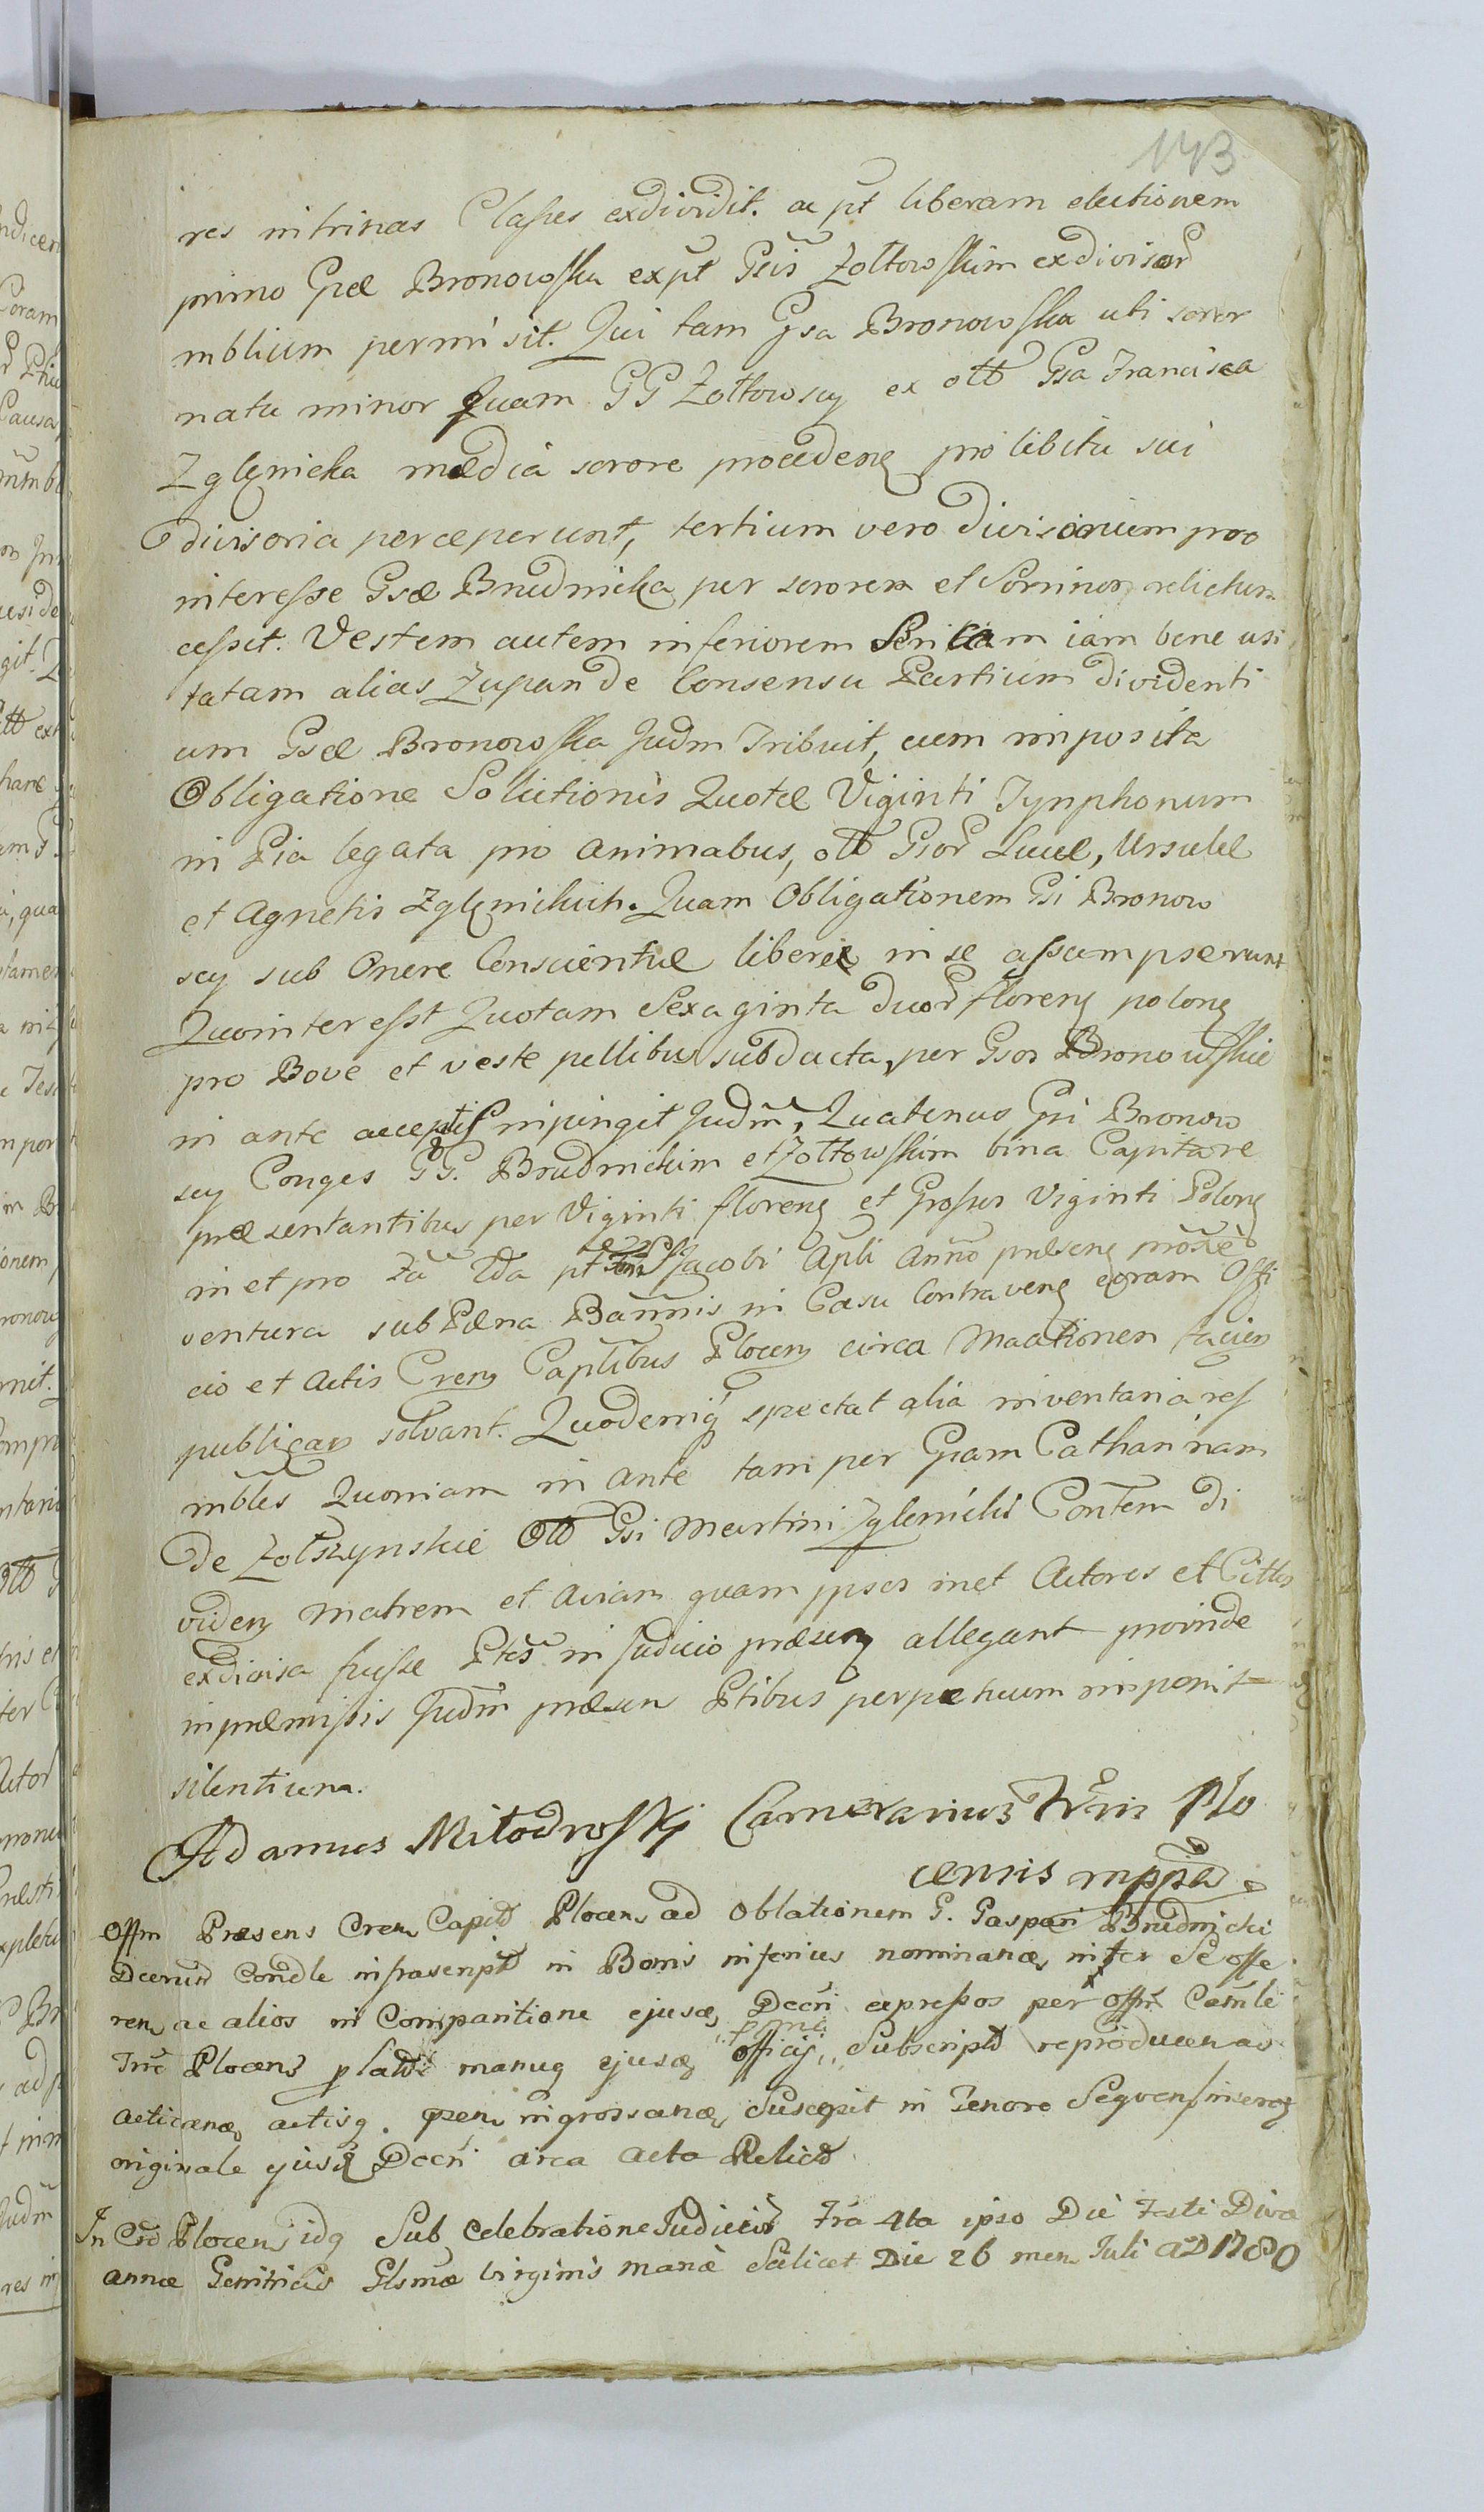 143
res in trinas Classes exdividit. ac pt liberam electionem
primo Gsæ Bronowska expt Gsis Zołtowskim exdivisor
mblium permisit. Qui tam Gsa Bronowska uti soror
natu minor Quam GG Zołtowscy ex olt Gsa Francisca
Zglenicka media sorore proceden pro libitu sui
divisoria perceperunt, tertium vero divisorium pro
interesse Gsæ Brudnicka per sororem et relictum
cessit. Vestem autem inferiorem Sericam iam bene usi
tatam alias Zupan de Consensu Partium dividenti
um Gsæ Bronowska Judm Tribuit, cum imposita
Obligatione Solutionis Quotæ Viginti Tynphonum
in Pia legata pro animabus, olt Gsor Luciæ, Ursulæ
et Agnetis Zglenickich. Quam Obligationem Gsi Bronow
scy sub Onere Conscientiæ libere in se assumpserunt
Quointeresst Quotam Sexaginta duor floren polon
pro Bove et veste pellibus subducta, per Gsos Bronowskie
in ante acceptis inpingit Judm, Quatenus Gsi Bronow
scy Conges GG. Brudnickim et Zołtowskim bina Capita re
præsentantibus per Viginti floren et Grossos Viginti Polon
in et pro Za pt Jacobi Apli Anno præsen
ventura sub Pæna Bannis in Casu Contraven coram Offi
cio et Actis Cren Captlibus Plocen circa facien
publican solvant. Quodemq spectat alia inventaria res
mbles Quoniam in ante tam per Gsam Catharinam
de Zołszynskie Olt Gsi Martini Zglenicki Contem di
viden Matrem et Aviam quam ipsos met Actores et Cittos
exdivisa fuisse Ptes in Judicio præsen allegant proinde
in præmissis Judm præsen Ptibus perpetuum imponit
silentium.
Adamus Miłodrosky Camerarius Trris Plo
censis mppria
Offm Præsens Cren Capitl Plocen ad Oblationem G. Gaspari Brudnicki
Decrum Condle infrascript in Bonis inferius nominan inter Se offe
ren ac alios in Comparitione ejusd Decri expressos per offm Camle
Trre Plocens manu ejusd officij Subscript reproducen ac
acticand actisq. ingrossand Suscepit in Tenore Sequen
originale ejusd Decri circa acta Relict
In Plocen idq Sub Celebratione Judicior Fria 4ta ipso Die Festi Divæ
annæ Genitricis Glsmæ virginis mariæ Scilicet Die 26 men Juli AD 1780